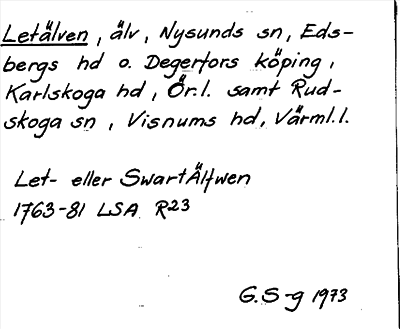 Letälven, älv, Nysunds sn, Eds-
bergs hd o. Degerfors köping,
Karlskoga hd, Ör.l. samt Rud-
skoga sn, Visnums hd, Värml.l.
Let- eller SwartÄlfwen
1763-81 LSA R23
G.S-g 1973